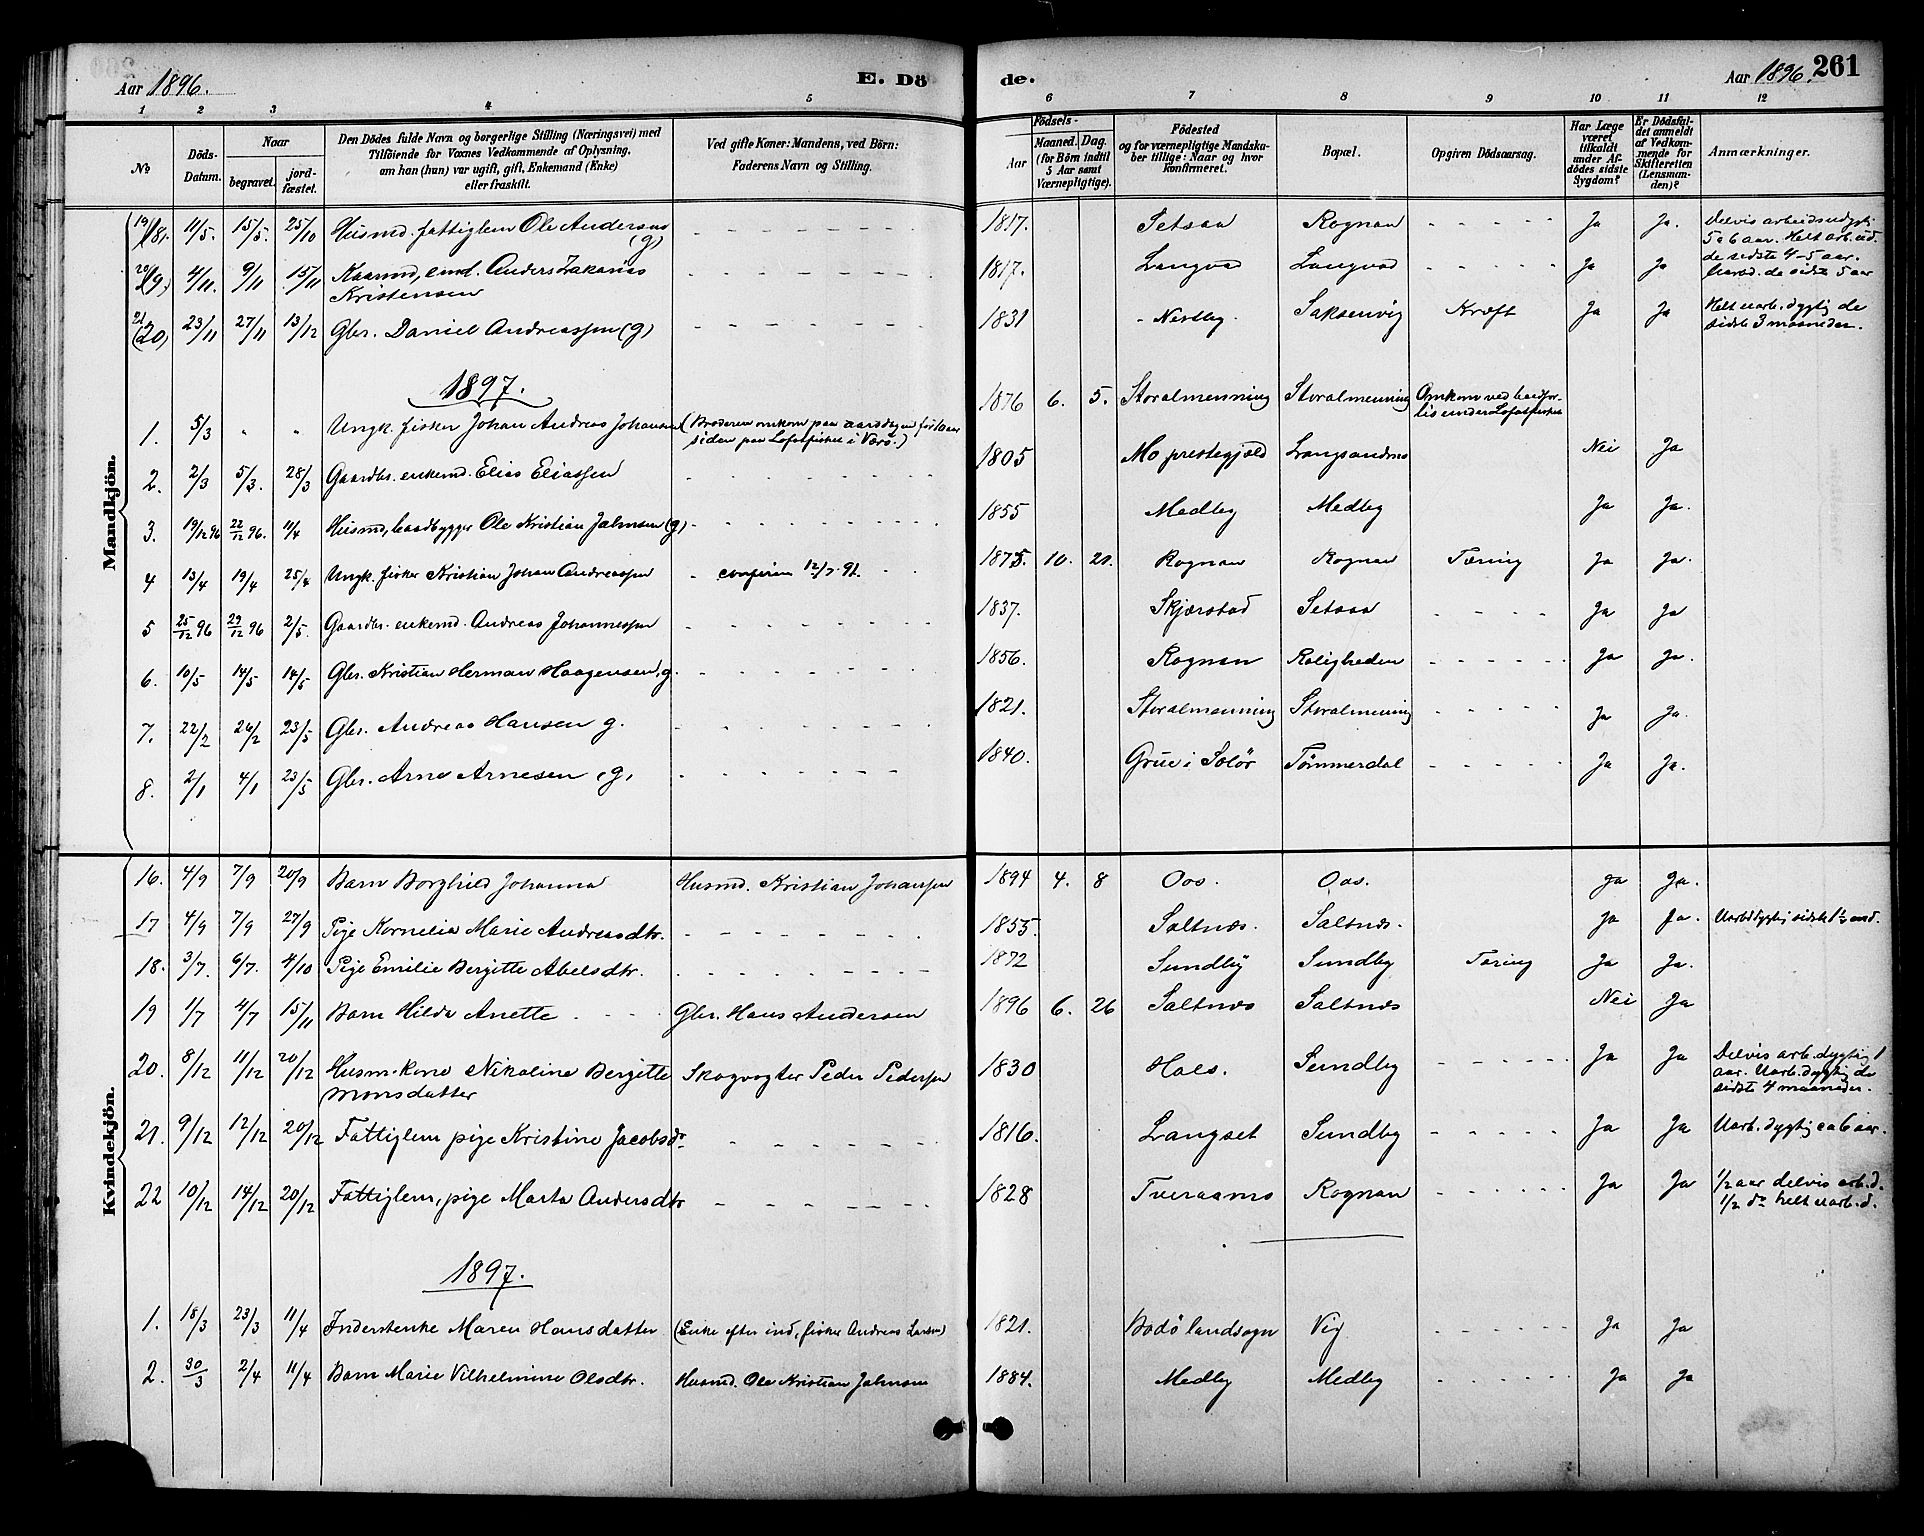 Aar 1896.
E. Dö
de.
Aar 1896.
261
1 2 3 4 5 6 7 8 9 10 11 12
No
Döds-Datum.
Naar
begravet.
jord-fæstet.
Den Dödes fulde Navn og borgerlige Stilling (Næringsvei) med
Tilföiende for Voxnes Vedkommende af Oplysning,
om han (hun) var ugift, gift, Enkemand (Enke)
eller fraskilt.
Ved gifte Koner: Mandens, ved Börn:
Faderens Navn og Stilling.
Födsels-
Aar
Maaned. Dag.
(for Börn indtil
5 Aar samt
Værnepligtige).
Födested
og for værnepligtige Mandska-
ber tillige: Naar og hvor
konfirmeret.
Bopæl.
Opgiven Dödsaarsag.
Har Læge
været
tilkaldt
under Af-
dödes sidste
Sygdom?
Er Dödsfal-
det anmeldt
af Vedkom-
mende for
Skifteretten
(Lensman-
den)?
Anmærkninger.
Mandkjön.
19 (18) 11/5. 15/5. 25/10 Husmd. fattiglem Ole Andersen (g) 1817. Setsaa Rognan Ja Ja. Delvis arbeidsudygtig 5 a 6 aar. Helt arb.ud.
20 (19) 4/11. 9/11 15/11 Kaarmd, enkem. Anders Zakarias Kristensen 1817. Langvad Langvad Ja Ja de sidste 4-5 aar. de sidste 5 aar
21 (20) 23/11 27/11 13/12 Gbr. Daniel Andreassen (g) 1831 Nestby. Saksenvig Kræft Ja Ja Helt uarb.dygtig de sidste 3 maaneder.
1897.
1. 5/3 " " Ungk. fisker Johan Andreas Johansen (Broderen omkom paa aarsdagen før siden paa Lofotfisket i Værø.) 1876 6. 5. Storalmenning Storalmenning Omkom ved baadforlis under Lofotfisket
2. 2/3 5/3. 28/3 Gaardbr. enkemd. Elias Eliassen 1805 Mo prestegjeld Langsandmo Nei Ja
3. 19/12 96 22/12 96. 11/4 Husmd, baadbygger Ole Kristian Jahnsen (g) 1855 Medby Medby Ja Ja.
4 13/4 19/4 25/4 Ungk. fisker Kristian Johan Andreassen confirm 12/7 91. 1875. 10. 21. Rognan Rognan Tæring Ja Ja.
5 25/12 96 29/12 96 2/5. Gaardbr. enkemd. Andreas Johannessen 1837. Skjærstad Setsaa Ja Ja
6. 10/5 14/5 14/5 Gbr. Kristian Herman Haagensen, g. 1856. Rognan Roligheden Ja Ja.
7. 22/2 26/2 23/5 Gbr. Andreas Hansen g. 1821. Storalmenning Storalmenning Ja Ja.
8. 2/1 4/1 23/5 Gbr. Arne Arnesen (g) 1840. Grue i Solør Tømmerdal Ja Ja.
Kvindekjön.
16. 4/9 7/9 20/9 Barn Borghild Johanna Husmd. Kristian Johanssen 1894 4. 8 Oos. Oos. Ja Ja.
17 4/9 7/9 27/9 Pige Kornelia Marie Andreasdtr. 1855. Saltnæs. Saltnæs. Ja Ja. Uarbdygtig sidste 1½ md.
18. 3/7. 6/7. 4/10 Pige Emilie Bergitte Abelsdtr. 1872 Sundby Sundby Tæring Ja Ja.
19 1/7 4/7 15/11 Barn Hilda Anette Gbr. Hans Andersen 1896 6. 26 Saltnæs Saltnæs Nei Ja
20. 8/12 11/12 20/12 Husm.kone Nikoline Bergitte Monsdatter Skogvogter Peder Pedersen 1830 Hals. Sundby Ja Ja Delvis arb.dygtig 1 aar. Uarb.dygtig de sidste 4 maaneder.
21. 9/12 12/12 20/12 Fattiglem pige Kristine Jacobsdr. 1816. Langset Sundby Ja Ja Uarb.dygtig ca 6 aar.
22 10/12 14/12 20/12 Fattiglem, pige Marta Andersdtr 1828 Tveraamo Rognan Ja Ja 1/2 aar delvis arb.d. 1/2 do helt uarb.d.
1897.
1. 18/3 23/3 11/4 Inderstenke Maren Hansdatter (Enke efter ind, fisker Andreas Larsen) 1821. Bodö landsogn Vig Ja Ja
2. 30/3 2/4 11/4 Barn Marie Vilhelmine Olsdtr. Husmd. Ole Kristian Jahnsen 1884. Medby Medby Ja Ja